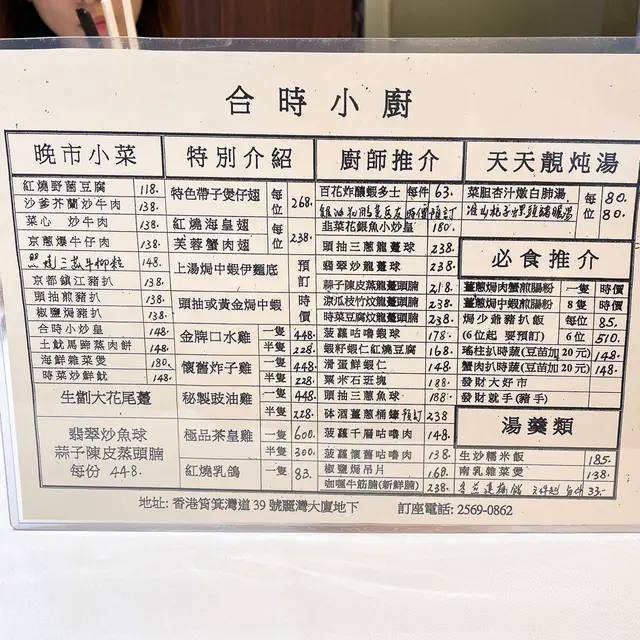 合時小廚
晚市小菜
紅燒野菌豆腐 118.
沙爹芥蘭炒牛肉 138.
菜心 炒牛肉 138.
京蔥爆牛仔肉 138.
148.
京都鎮江豬扒 138.
頭抽煎豬扒 138.
椒鹽焗豬扒 138.
合時小炒皇 148.
土魷馬蹄蒸肉餅 148.
海鮮雜菜煲 180.
時菜炒鮮魷 148.
生劏大花尾躉
翡翠炒魚球
蒜子陳皮蒸頭腩
每份 448.
特別介紹
特色帶子煲仔翅 每位 268.
紅燒海皇翅
芙蓉蟹肉翅 每位 238.
上湯焗中蝦伊麵底 預訂
頭抽或黃金焗中蝦 時價
金牌口水雞 一隻 448.
半隻 228.
懷舊炸子雞 一隻 448.
半隻 228.
秘製豉油雞 一隻 448.
半隻 228.
極品茶皇雞 一隻 600.
半隻 300.
紅燒乳鴿 一隻 83.
廚師推介
百花炸釀蝦多士 每件 63.
預訂
韮菜花銀魚小炒皇 180.
頭抽三蔥龍躉球 238.
翡翠炒龍躉球 238.
蒜子陳皮蒸龍躉頭腩 218.
涼瓜枝竹炆龍躉球 238.
時菜豆腐炆龍躉頭腩 238.
菠蘿咕嚕蝦球 178.
蝦籽蝦仁紅燒豆腐 168.
滑蛋鮮蝦仁 148.
粟米石斑塊 188.
頭抽三蔥魚球 188.
砵酒薑蔥桶蠔 預訂 238
菠蘿千層咕嚕肉 148.
菠蘿懷舊咕嚕肉 138.
椒鹽焗吊片 160.
咖喱牛筋腩(新鮮腩) 238.
天天靚炖湯
菜胆杏汁燉白肺湯 每位 80.
80.
必食推介
薑蔥焗肉蟹煎腸粉 一隻 時價
薑蔥焗中蝦煎腸粉 8隻 時價
焗少爺豬扒飯 每位 85.
(6位起 要預訂) 6位 510.
瑤柱扒時蔬(豆苗加20元) 148.
蟹肉扒時蔬(豆苗加20元) 148.
發財大好市
發財就手(豬手)
湯羹類
生炒糯米飯 185.
南乳雜菜煲 138.
33.
地址: 香港筲箕灣道 39 號麗灣大廈地下 訂座電話: 2569-0862